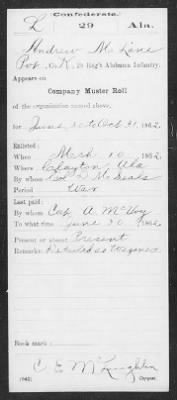 Confederate.
L 29 Ala.
Andrew M Lane
Pvt, Co. K, 29 Reg't Alabama Infantry.
Appears on
Company Muster Roll
of the organization named above,
for June 30 to Oct 31, 1862.
Enlisted:
When Mch 10, 1862.
Where Clayton Ala
By whom
Period War
Last paid:
By whom Cap. A. McVoy
To what time June 30, 1862.
Present or absent Present
Remarks: Detailed as Wagoner
Book mark:
C E McLaughlin
(642) Copyist.